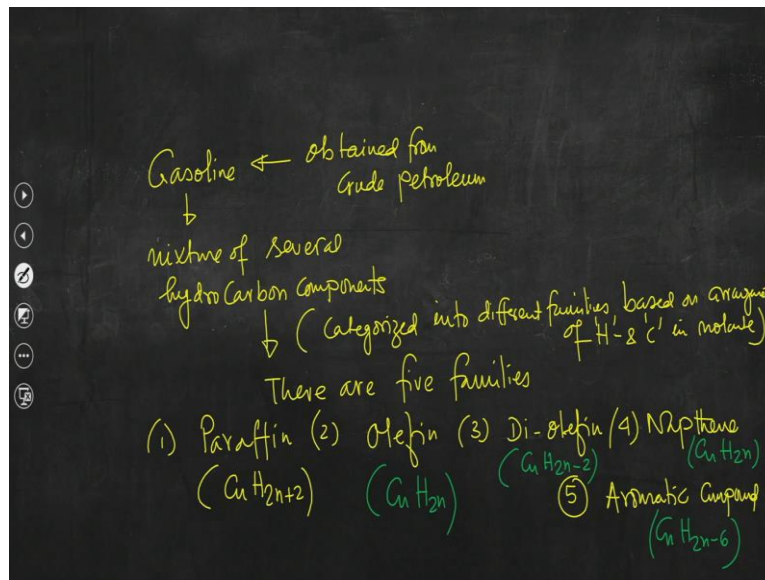 Gasoline ← obtained from
Crude petroleum
↓
mixture of several
hydroCarbon Components
↓ (Categorized into different families, based on arrangme
of 'H' & 'C' in molcule)
There are five families
(1) Paraffin (2) Olefin (3) Di-olefin (4) Napthene
(CnH2n+2) (CnH2n) (CnH2n-2) (CnH2n)
(5) Aromatic Compound
(CnH2n-6)